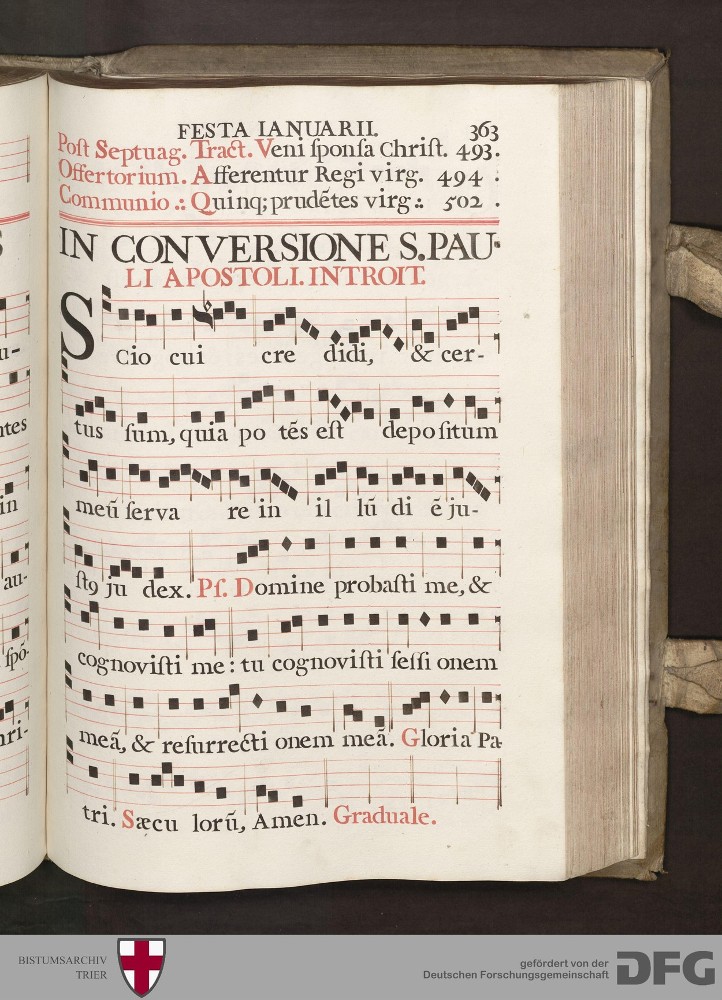 FESTA IANUARII. 363
Poſt Septuag. Tract. Veni ſponſa Chriſt. 493.
Offertorium. Afferentur Regi virg. 494 .
Communio .: Quinq; prudẽtes virg.: 502 .
IN CONVERSIONE S. PAU-
LI APOSTOLI. INTROIT.
SCio cui cre didi, & cer-
tus ſum, quia po tẽs eſt depoſitum
meũ ſerva re in il lũ di ẽ ju-
ſtꝰ ju dex. Pſ. Domine probaſti me, &
cognoviſti me: tu cognoviſti ſeſſi onem
meã, & reſurrecti onem meã. Gloria Pa-
tri. Sæcu lorũ, Amen. Graduale.
u-
ntes
in
au-
ſpõ-
hri-
BISTUMSARCHIV
TRIER
gefördert von der
Deutschen Forschungsgemeinschaft
DFG